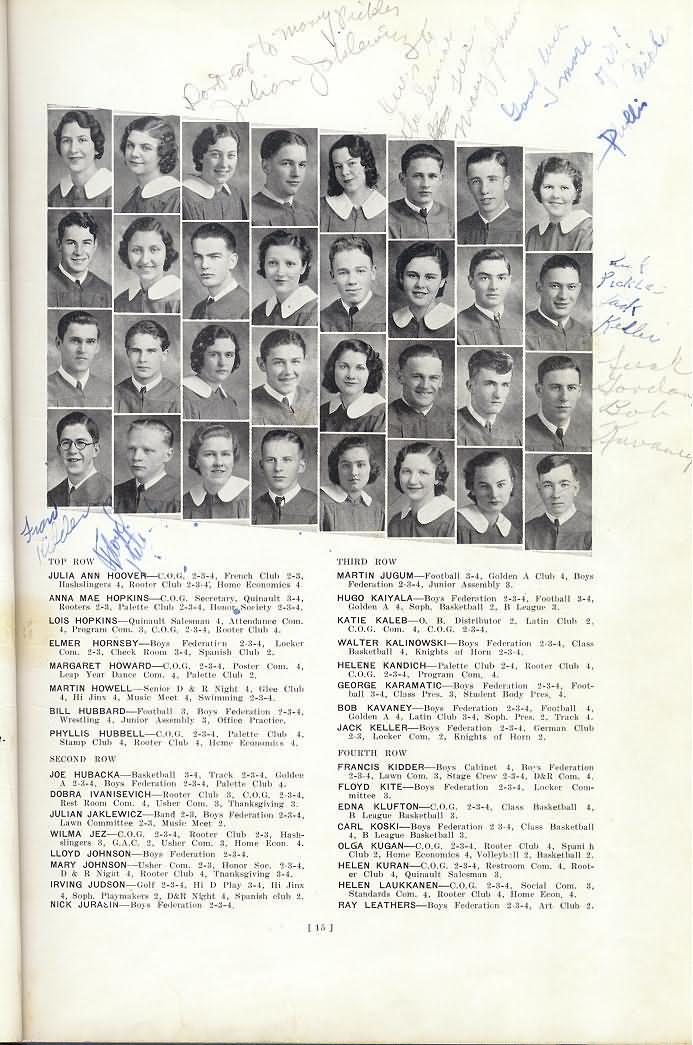 Dont eat to many Pickles
Julian Jaklewicz
Mary Johnson
Good luck
& more
of it!
Phillis
Luck
Pickle
Jack
Keller
Jack
Gordon
Bob
Kavaney
Fran
Kidder
Floyd
Kite
TOP ROW
JULIA ANN HOOVER—C.O.G. 2-3-4, French Club 2-3,
Hashslingers 4, Rooter Club 2-3-4, Home Economics 4
ANNA MAE HOPKINS—C.O.G. Secretary, Quinault 3-4,
Rooters 2-3, Palette Club 2-3-4, Honor Society 2-3-4.
LOIS HOPKINS—Quinault Salesman 4, Attendance Com.
4, Program Com. 3, C.O.G. 2-3-4, Rooter Club 4.
ELMER HORNSBY—Boys Federation 2-3-4, Locker
Com. 2-3, Check Room 3-4, Spanish Club 2.
MARGARET HOWARD—C.O.G. 2-3-4, Poster Com. 4,
Leap Year Dance Com. 4, Palette Club 2.
MARTIN HOWELL—Senior D & R Night 4, Glee Club
4, Hi Jinx 4, Music Meet 4, Swimming 2-3-4.
BILL HUBBARD—Football 3, Boys Federation 2-3-4,
Wrestling 4, Junior Assembly 3, Office Practice.
PHYLLIS HUBBELL—C.O.G. 2-3-4, Palette Club 4,
Stamp Club 4, Rooter Club 4, Home Economics 4.
SECOND ROW
JOE HUBACKA—Basketball 3-4, Track 2-3-4, Golden
A 2-3-4, Boys Federation 2-3-4, Palette Club 4.
DOBRA IVANISEVICH—Rooter Club 3, C.O.G. 2-3-4,
Rest Room Com. 4, Usher Com. 3, Thanksgiving 3.
JULIAN JAKLEWICZ—Band 2-3, Boys Federation 2-3-4,
Lawn Committee 2-3, Music Meet 2.
WILMA JEZ—C.O.G. 2-3-4, Rooter Club 2-3, Hash-
slingers 3, G.A.C. 2, Usher Com. 3, Home Econ. 4.
LLOYD JOHNSON—Boys Federation 2-3-4.
MARY JOHNSON—Usher Com. 2-3, Honor Soc. 2-3-4,
D & R Night 4, Rooter Club 4, Thanksgiving 3-4.
IRVING JUDSON—Golf 2-3-4, Hi D Play 3-4, Hi Jinx
4, Soph. Playmakers 2, D&R Night 4, Spanish club 2.
NICK JURASIN—Boys Federation 2-3-4.
THIRD ROW
MARTIN JUGUM—Football 3-4, Golden A Club 4, Boys
Federation 2-3-4, Junior Assembly 3.
HUGO KAIYALA—Boys Federation 2-3-4, Football 3-4,
Golden A 4, Soph. Basketball 2, B League 3.
KATIE KALEB—O. B. Distributor 2, Latin Club 2,
C.O.G. Com. 4, C.O.G. 2-3-4.
WALTER KALINOWSKI—Boys Federation 2-3-4, Class
Basketball 4, Knights of Horn 2-3-4.
HELENE KANDICH—Palette Club 2-4, Rooter Club 4,
C.O.G. 2-3-4, Program Com. 4.
GEORGE KARAMATIC—Boys Federation 2-3-4, Foot-
ball 3-4, Class Pres. 3, Student Body Pres. 4.
BOB KAVANEY—Boys Federation 2-3-4, Football 4,
Golden A 4, Latin Club 3-4, Soph. Pres. 2, Track 4.
JACK KELLER—Boys Federation 2-3-4, German Club
2-3, Locker Com. 2, Knights of Horn 2.
FOURTH ROW
FRANCIS KIDDER—Boys Cabinet 4, Boys Federation
2-3-4, Lawn Com. 3, Stage Crew 2-3-4, D&R Com. 4.
FLOYD KITE—Boys Federation 2-3-4, Locker Com-
mittee 3.
EDNA KLUFTON—C.O.G. 2-3-4, Class Basketball 4,
B League Basketball 3.
CARL KOSKI—Boys Federation 2 3-4, Class Basketball
4, B League Basketball 3.
OLGA KUGAN—C.O.G. 2-3-4, Rooter Club 4, Spanish
Club 2, Home Economics 4, Volleyball 2, Basketball 2.
HELEN KURAN—C.O.G. 2-3-4, Restroom Com. 4, Root-
er Club 4, Quinault Salesman 3.
HELEN LAUKKANEN—C.O.G. 2-3-4, Social Com. 3,
Standards Com. 4, Rooter Club 4, Home Econ. 4.
RAY LEATHERS—Boys Federation 2-3-4, Art Club 2.
[ 15 ]